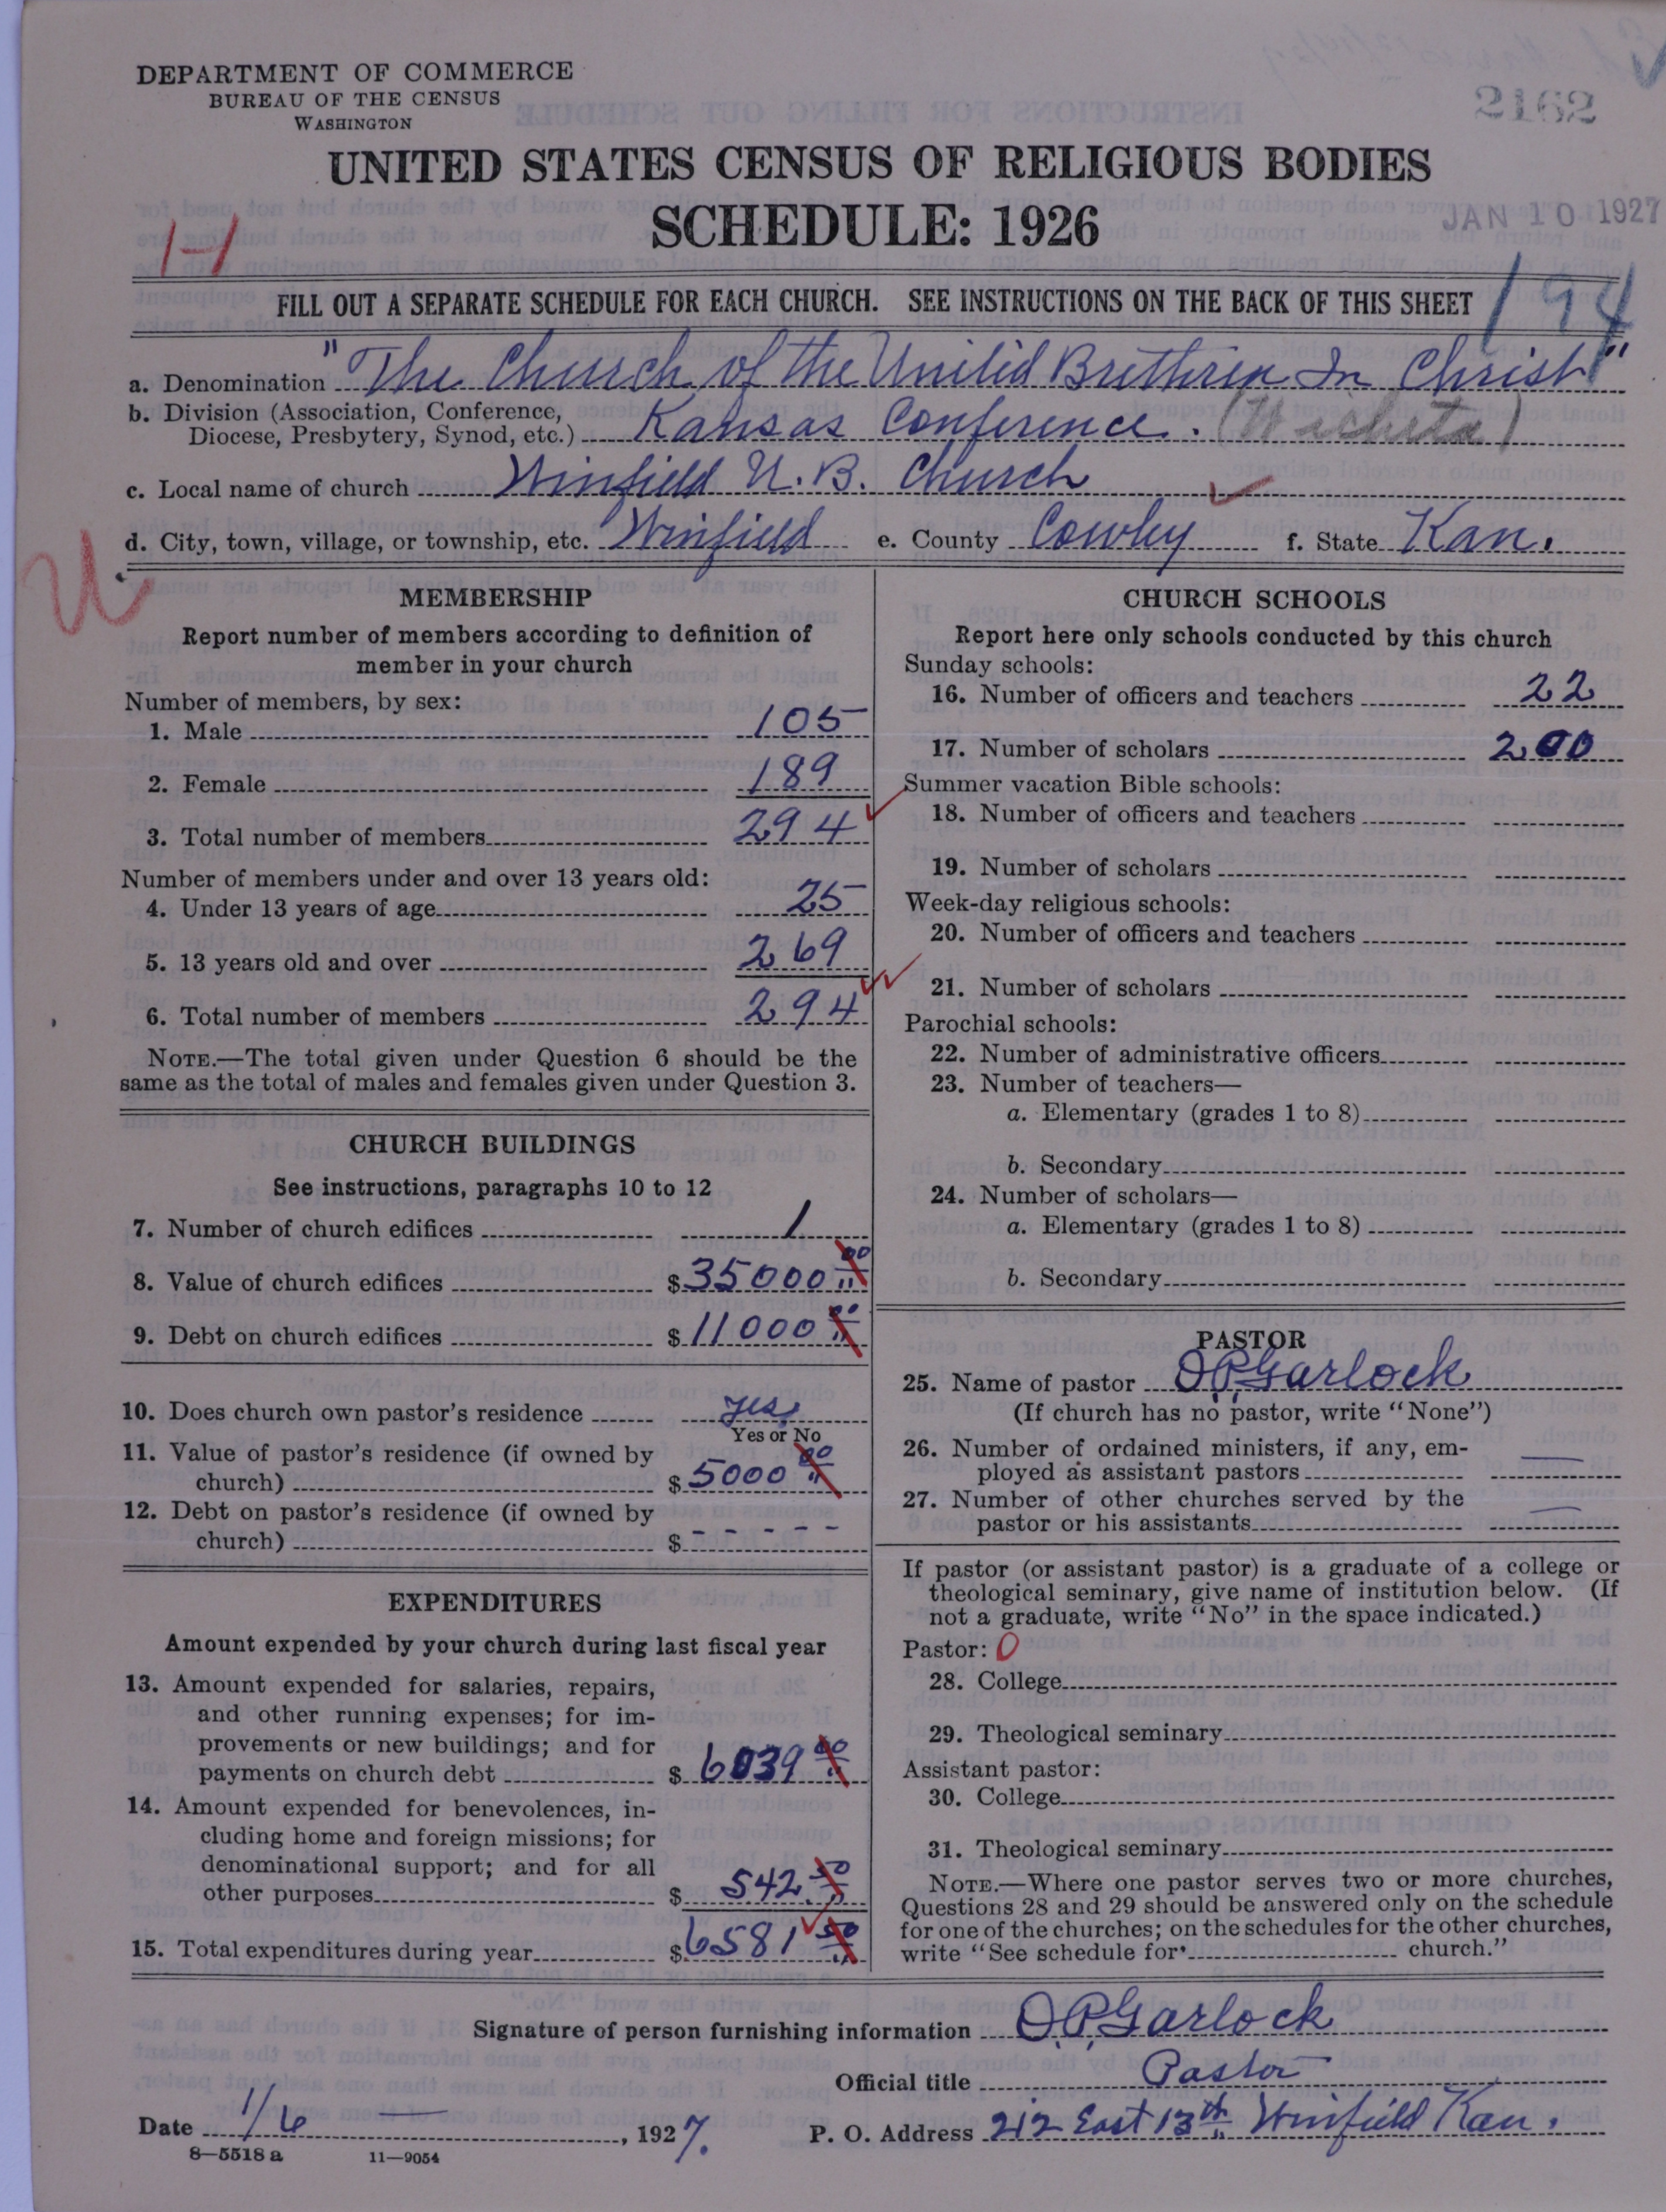 DEPARTMENT OF COMMERCE
BUREAU OF THE CENSUS
WASHINGTON
2162
UNITED STATES CENSUS OF RELIGIOUS BODIES
SCHEDULE: 1926
JAN 10 1927
194
FILL OUT A SEPARATE SCHEDULE FOR EACH CHURCH. SEE INSTRUCTIONS ON THE BACK OF THIS SHEET
a. Denomination "The Church of the United Brethren In Christ"
b. Division (Association, Conference,
Diocese, Presbytery, Synod, etc.) Kansas Conference. (Wichita)
c. Local name of church Winfield U.B. Church
d. City, town, village, or township, etc. Winfield e. County Cowley f. State Kan.
U
MEMBERSHIP
Report number of members according to definition of
member in your church
Number of members, by sex:
1. Male 105
2. Female 189
3. Total number of members 294
Number of members under and over 13 years old:
4. Under 13 years of age 25
5. 13 years old and over 269
6. Total number of members 294
NOTE.—The total given under Question 6 should be the
same as the total of males and females given under Question 3.
CHURCH BUILDINGS
See instructions, paragraphs 10 to 12
7. Number of church edifices 1
8. Value of church edifices $35000 00
9. Debt on church edifices $11000 00
10. Does church own pastor's residence yes
Yes or No
11. Value of pastor's residence (if owned by
church) $5000 00
12. Debt on pastor's residence (if owned by
church) $ - - - - - -
EXPENDITURES
Amount expended by your church during last fiscal year
13. Amount expended for salaries, repairs,
and other running expenses; for im-
provements or new buildings; and for
payments on church debt $6039 00
14. Amount expended for benevolences, in-
cluding home and foreign missions; for
denominational support; and for all
other purposes $542.50
15. Total expenditures during year $6581 50
CHURCH SCHOOLS
Report here only schools conducted by this church
Sunday schools:
16. Number of officers and teachers 22
17. Number of scholars 200
Summer vacation Bible schools:
18. Number of officers and teachers
19. Number of scholars
Week-day religious schools:
20. Number of officers and teachers
21. Number of scholars
Parochial schools:
22. Number of administrative officers
23. Number of teachers—
a. Elementary (grades 1 to 8)
b. Secondary
24. Number of scholars—
a. Elementary (grades 1 to 8)
b. Secondary
PASTOR
25. Name of pastor O.P. Garlock
(If church has no pastor, write "None")
26. Number of ordained ministers, if any, em-
ployed as assistant pastors —
27. Number of other churches served by the
pastor or his assistants —
If pastor (or assistant pastor) is a graduate of a college or
theological seminary, give name of institution below. (If
not a graduate, write "No" in the space indicated.)
Pastor: 0
28. College
29. Theological seminary
Assistant pastor:
30. College
31. Theological seminary
NOTE.—Where one pastor serves two or more churches,
Questions 28 and 29 should be answered only on the schedule
for one of the churches; on the schedules for the other churches,
write "See schedule for church."
Signature of person furnishing information O.P. Garlock
Official title Pastor
Date 1/6 —, 1927. P. O. Address 212 East 13th Winfield Kan.
8—5518 a 11—9054